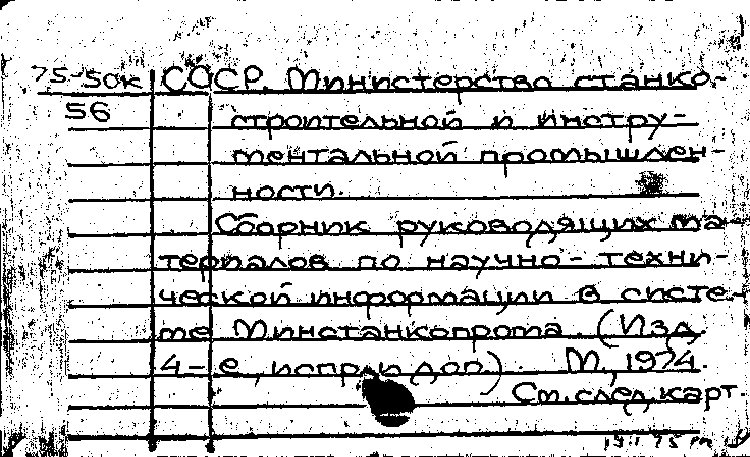 75-50к СССР. Министерство станко-
56 строительной и инстру-
ментальной промышлен-
ности.
Сборник руководящих ма-
териалов по научно-техни-
ческой информации в систе-
ме Минстанкопрома. (Изд.
4-е, испр. и доп.). М., 1974.
См. след. карт.